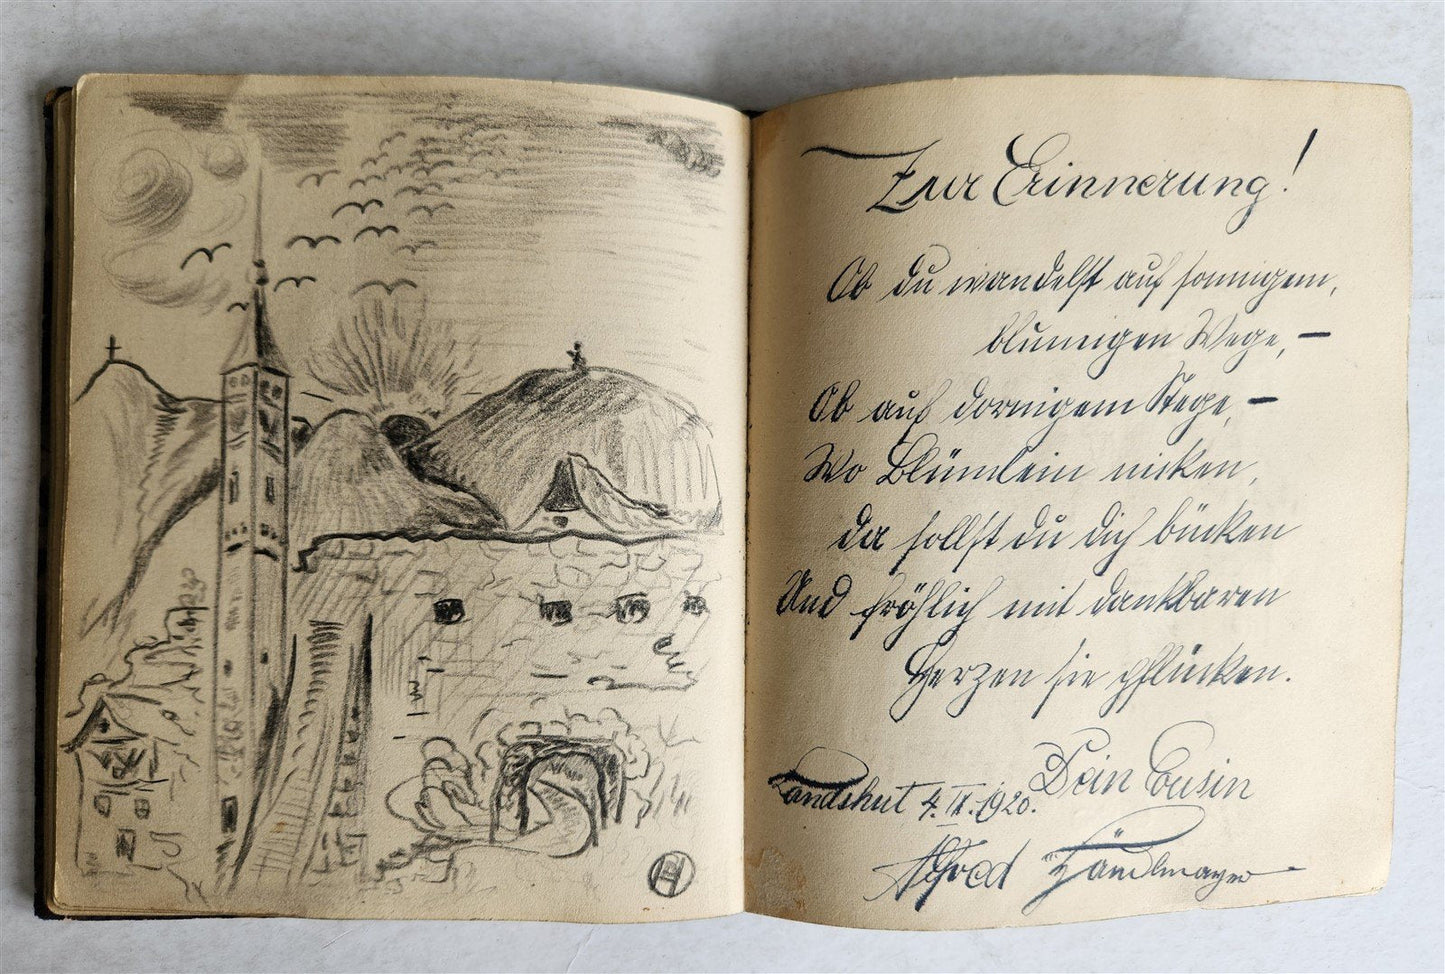 Zur Erinnerung!
Ob du wandelst auf sonnigem,
blumigen Wege, –
Ob auf dornigem Stege, –
Wo Blümlein nicken,
da sollst du dich bücken
Und fröhlich mit dankbaren
Herzen sie pflücken.
Dein Cusin
Landshut 4. IX. 1920.
Alfred Händlmayer